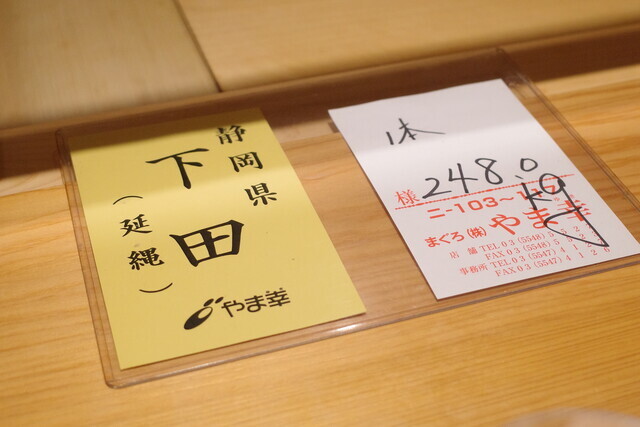 静岡県
下田
(延縄)
やま幸
1本
248.0
kg
様
ニ-103~
まぐろ(株)やま幸
店舗TEL03(5548)
FAX03(5548)
事務所TEL03(5547)
FAX03(5547)4126